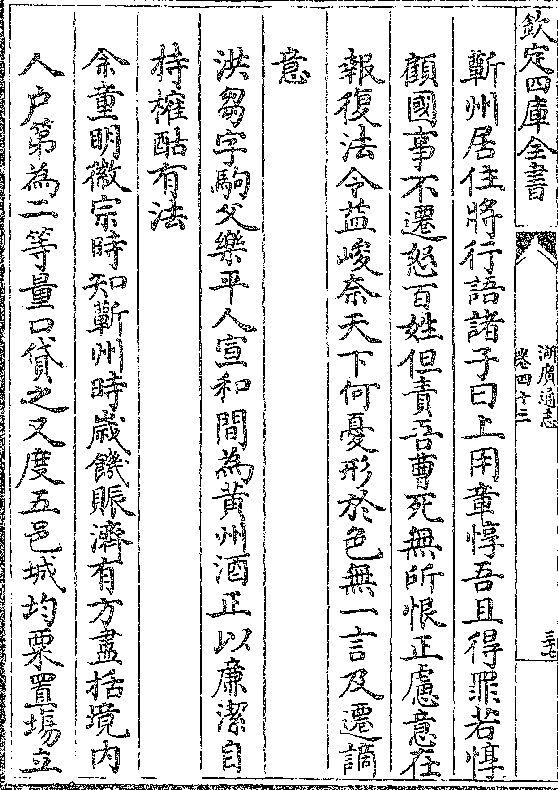 欽定四庫全書
湖廣通志
卷四十二
三十七
蘄州居住將行語諸子曰上用章惇吾且得罪若惇
顧國事不遷怒百姓但責吾曹死無所恨正慮意在
報復法令益峻奈天下何憂形於色無一言及遷謫
意
洪芻字駒父樂平人宣和間為黄州酒正以廉潔自
持榷酤有法
余童明徽宗時知蘄州時歲饑賑濟有方盡括境内
人户第為二等量口貸之又度五邑城均粟置塲立